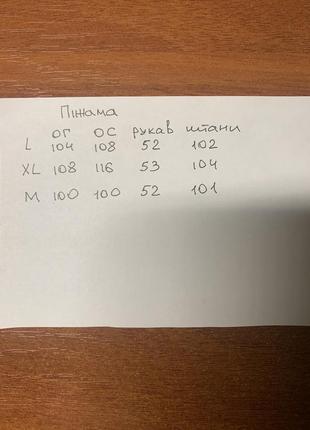 Піжама
ОГ ОС рукав штани
L 104 108 52 102
XL 108 116 53 104
M 100 100 52 101